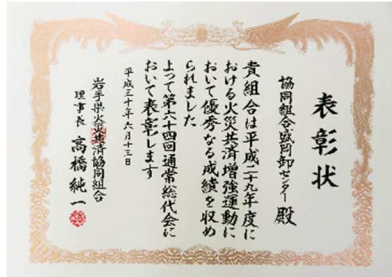 表彰状
協同組合盛岡卸センター 殿
貴組合は平成二十九年度に
おける火災共済増強運動に
おいて優秀なる成績を収め
られました
よって第六十四回通常総代会に
おいて表彰します
平成三十年六月十三日
岩手県火災共済協同組合
理事長 高橋純一